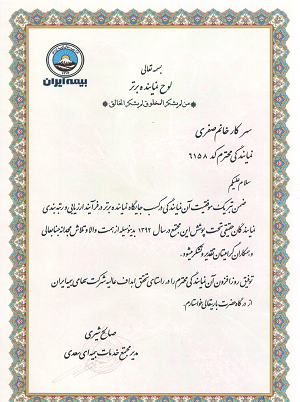 بیمه ایران
بسمه تعالی
لوح نماینده برتر
من لم یشکر المخلوق لم یشکر الخالق
سرکار خانم صفری
نمایندگی محترم کد ۶۱۵۸
سلام علیکم
ضمن تبریک موفقیت آن نمایندگی در کسب جایگاه نماینده برتر در فرآیند ارزیابی و رتبه بندی
نمایندگان حقیقی تحت پوشش این مجتمع در سال ۱۳۹۲ بدینوسیله از همت والا و تلاش مجدانه جنابعالی
و همکاران گرامیتان تقدیر و تشکر میشود.
توفیق روز افزون آن نمایندگی محترم را در راستای تحقق اهداف عالیه شرکت سهامی بیمه ایران
از درگاه حضرت باریتعالی خواستارم.
صالح شیری
مدیر مجتمع خدمات بیمه ای سعدی